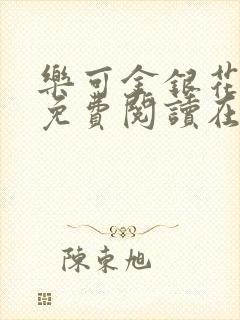 樂可金銀花
免費閱讀在
陳東旭